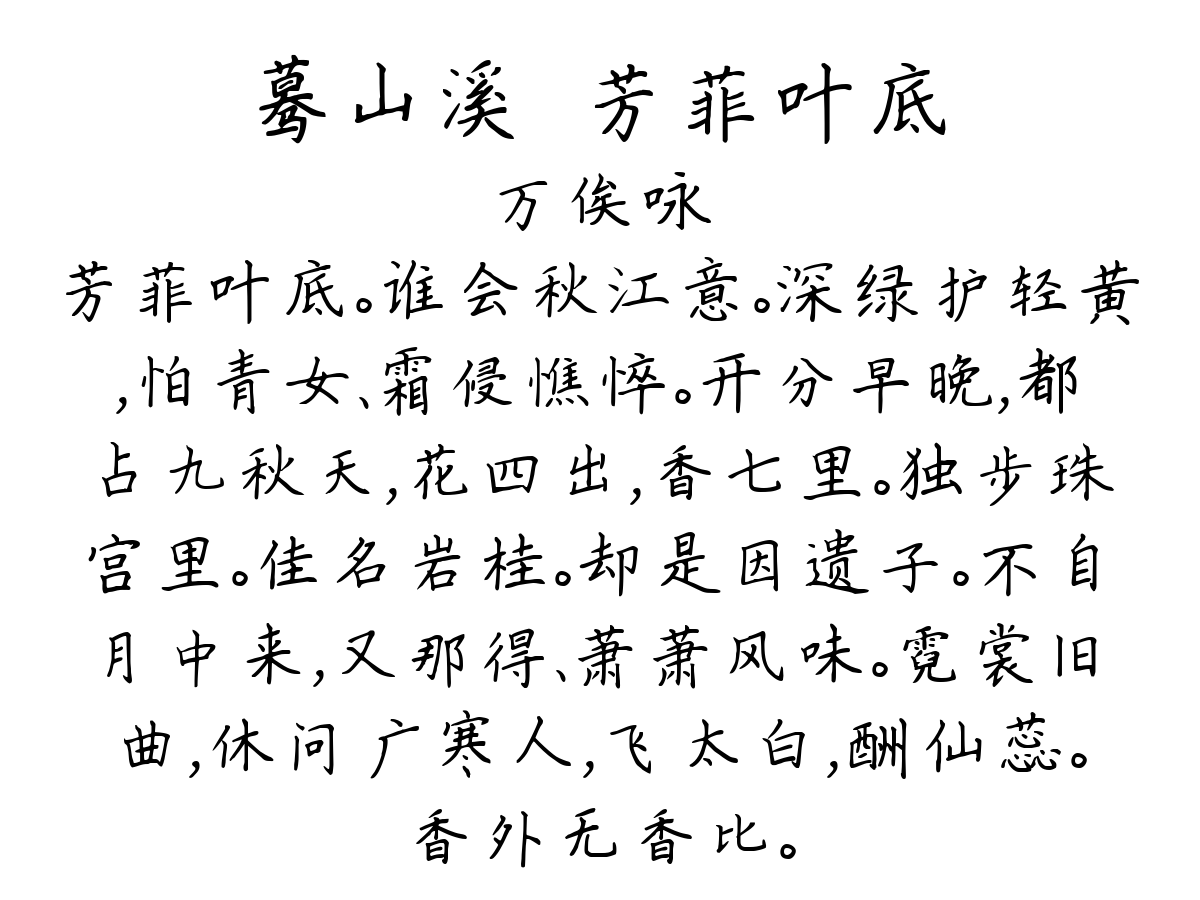 蓦山溪 芳菲叶底
万俟咏
芳菲叶底。谁会秋江意。深绿护轻黄
,怕青女、霜侵憔悴。开分早晚,都
占九秋天,花四出,香七里。独步珠
宫里。佳名岩桂。却是因遗子。不自
月中来,又那得、萧萧风味。霓裳旧
曲,休问广寒人,飞太白,酬仙蕊。
香外无香比。